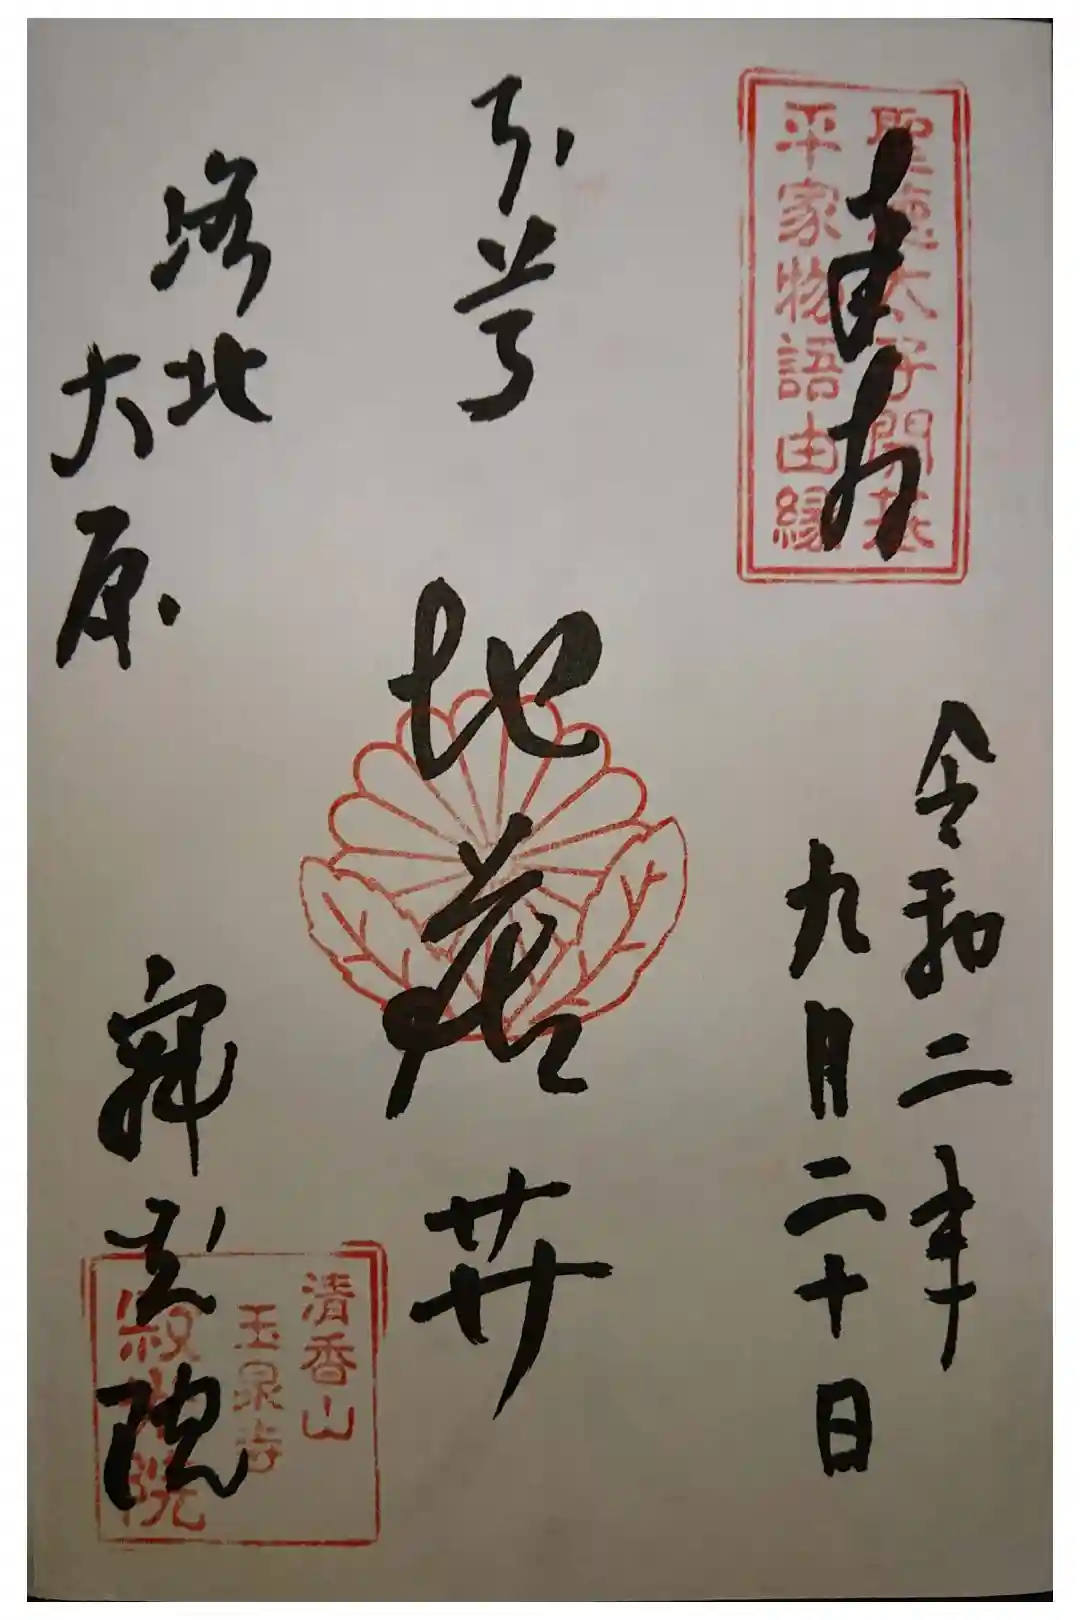 聖徳太子開基
平家物語由縁
奉拝
令和二年
九月二十日
引導
地蔵廾
洛北
大原
寂光院
清香山
玉泉寺
寂光院